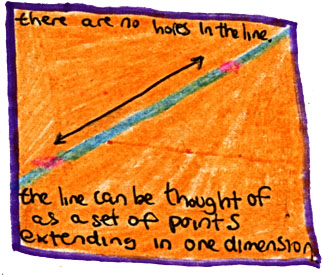 there are no holes in the line.
the line can be thought of
as a set of points
extending in one dimension